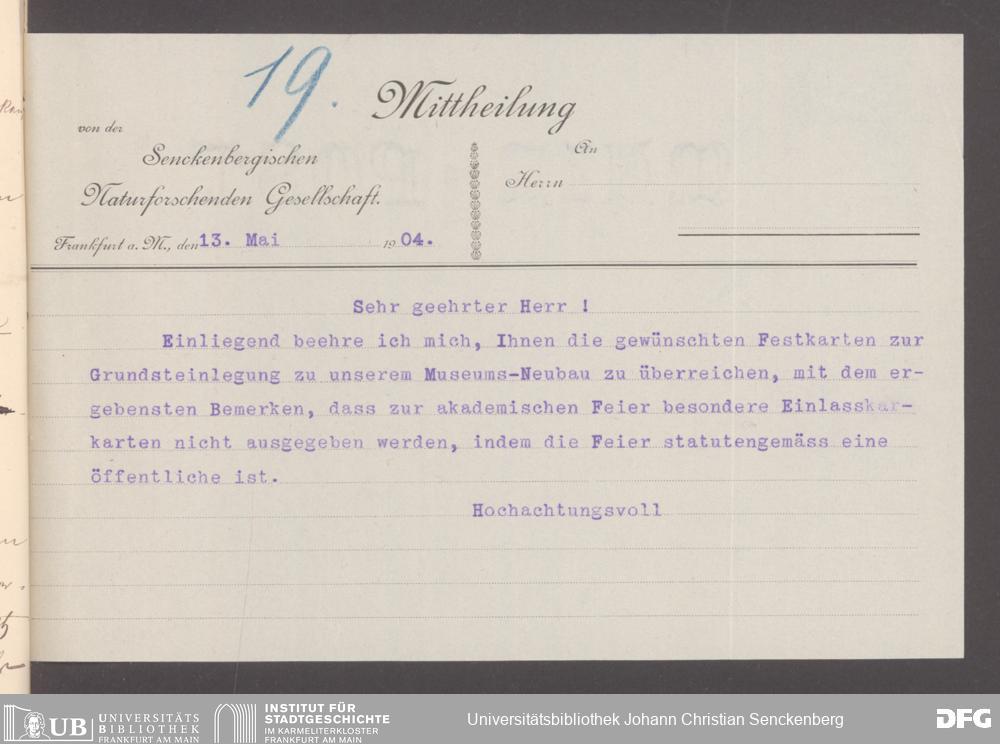 19.
Mittheilung
von der
Senckenbergischen
Naturforschenden Gesellschaft.
Frankfurt a. M., den 13. Mai 1904.
An
Herrn
Sehr geehrter Herr !
Einliegend beehre ich mich, Ihnen die gewünschten Festkarten zur
Grundsteinlegung zu unserem Museums-Neubau zu überreichen, mit dem er-
gebensten Bemerken, dass zur akademischen Feier besondere Einlasskar-
karten nicht ausgegeben werden, indem die Feier statutengemäss eine
öffentliche ist.
Hochachtungsvoll
UB UNIVERSITÄTS
BIBLIOTHEK
FRANKFURT AM MAIN
INSTITUT FÜR
STADTGESCHICHTE
IM KARMELITERKLOSTER
FRANKFURT AM MAIN
Universitätsbibliothek Johann Christian Senckenberg
DFG